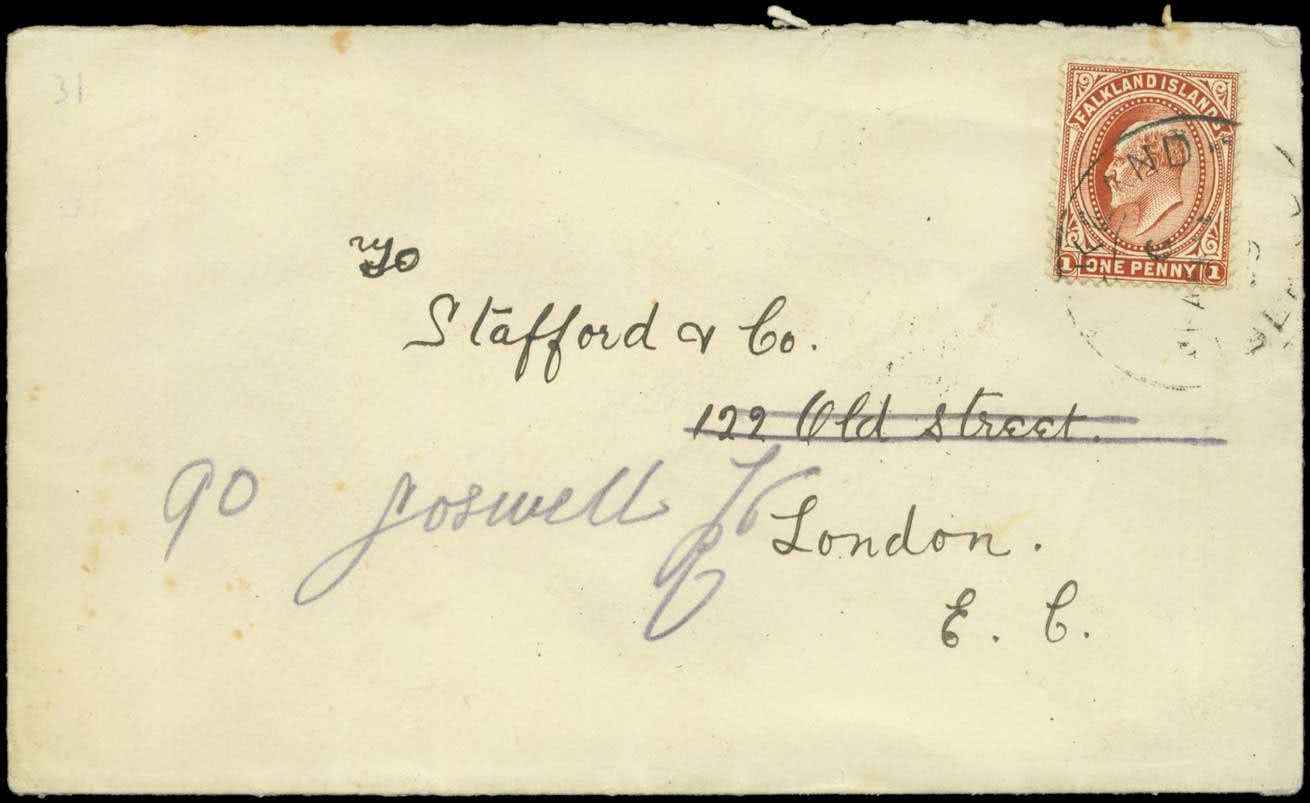 31
FALKLAND ISLANDS
1 ONE PENNY 1
To
Stafford & Co.
122 Old Street.
90 Goswell Rd
London.
E. C.